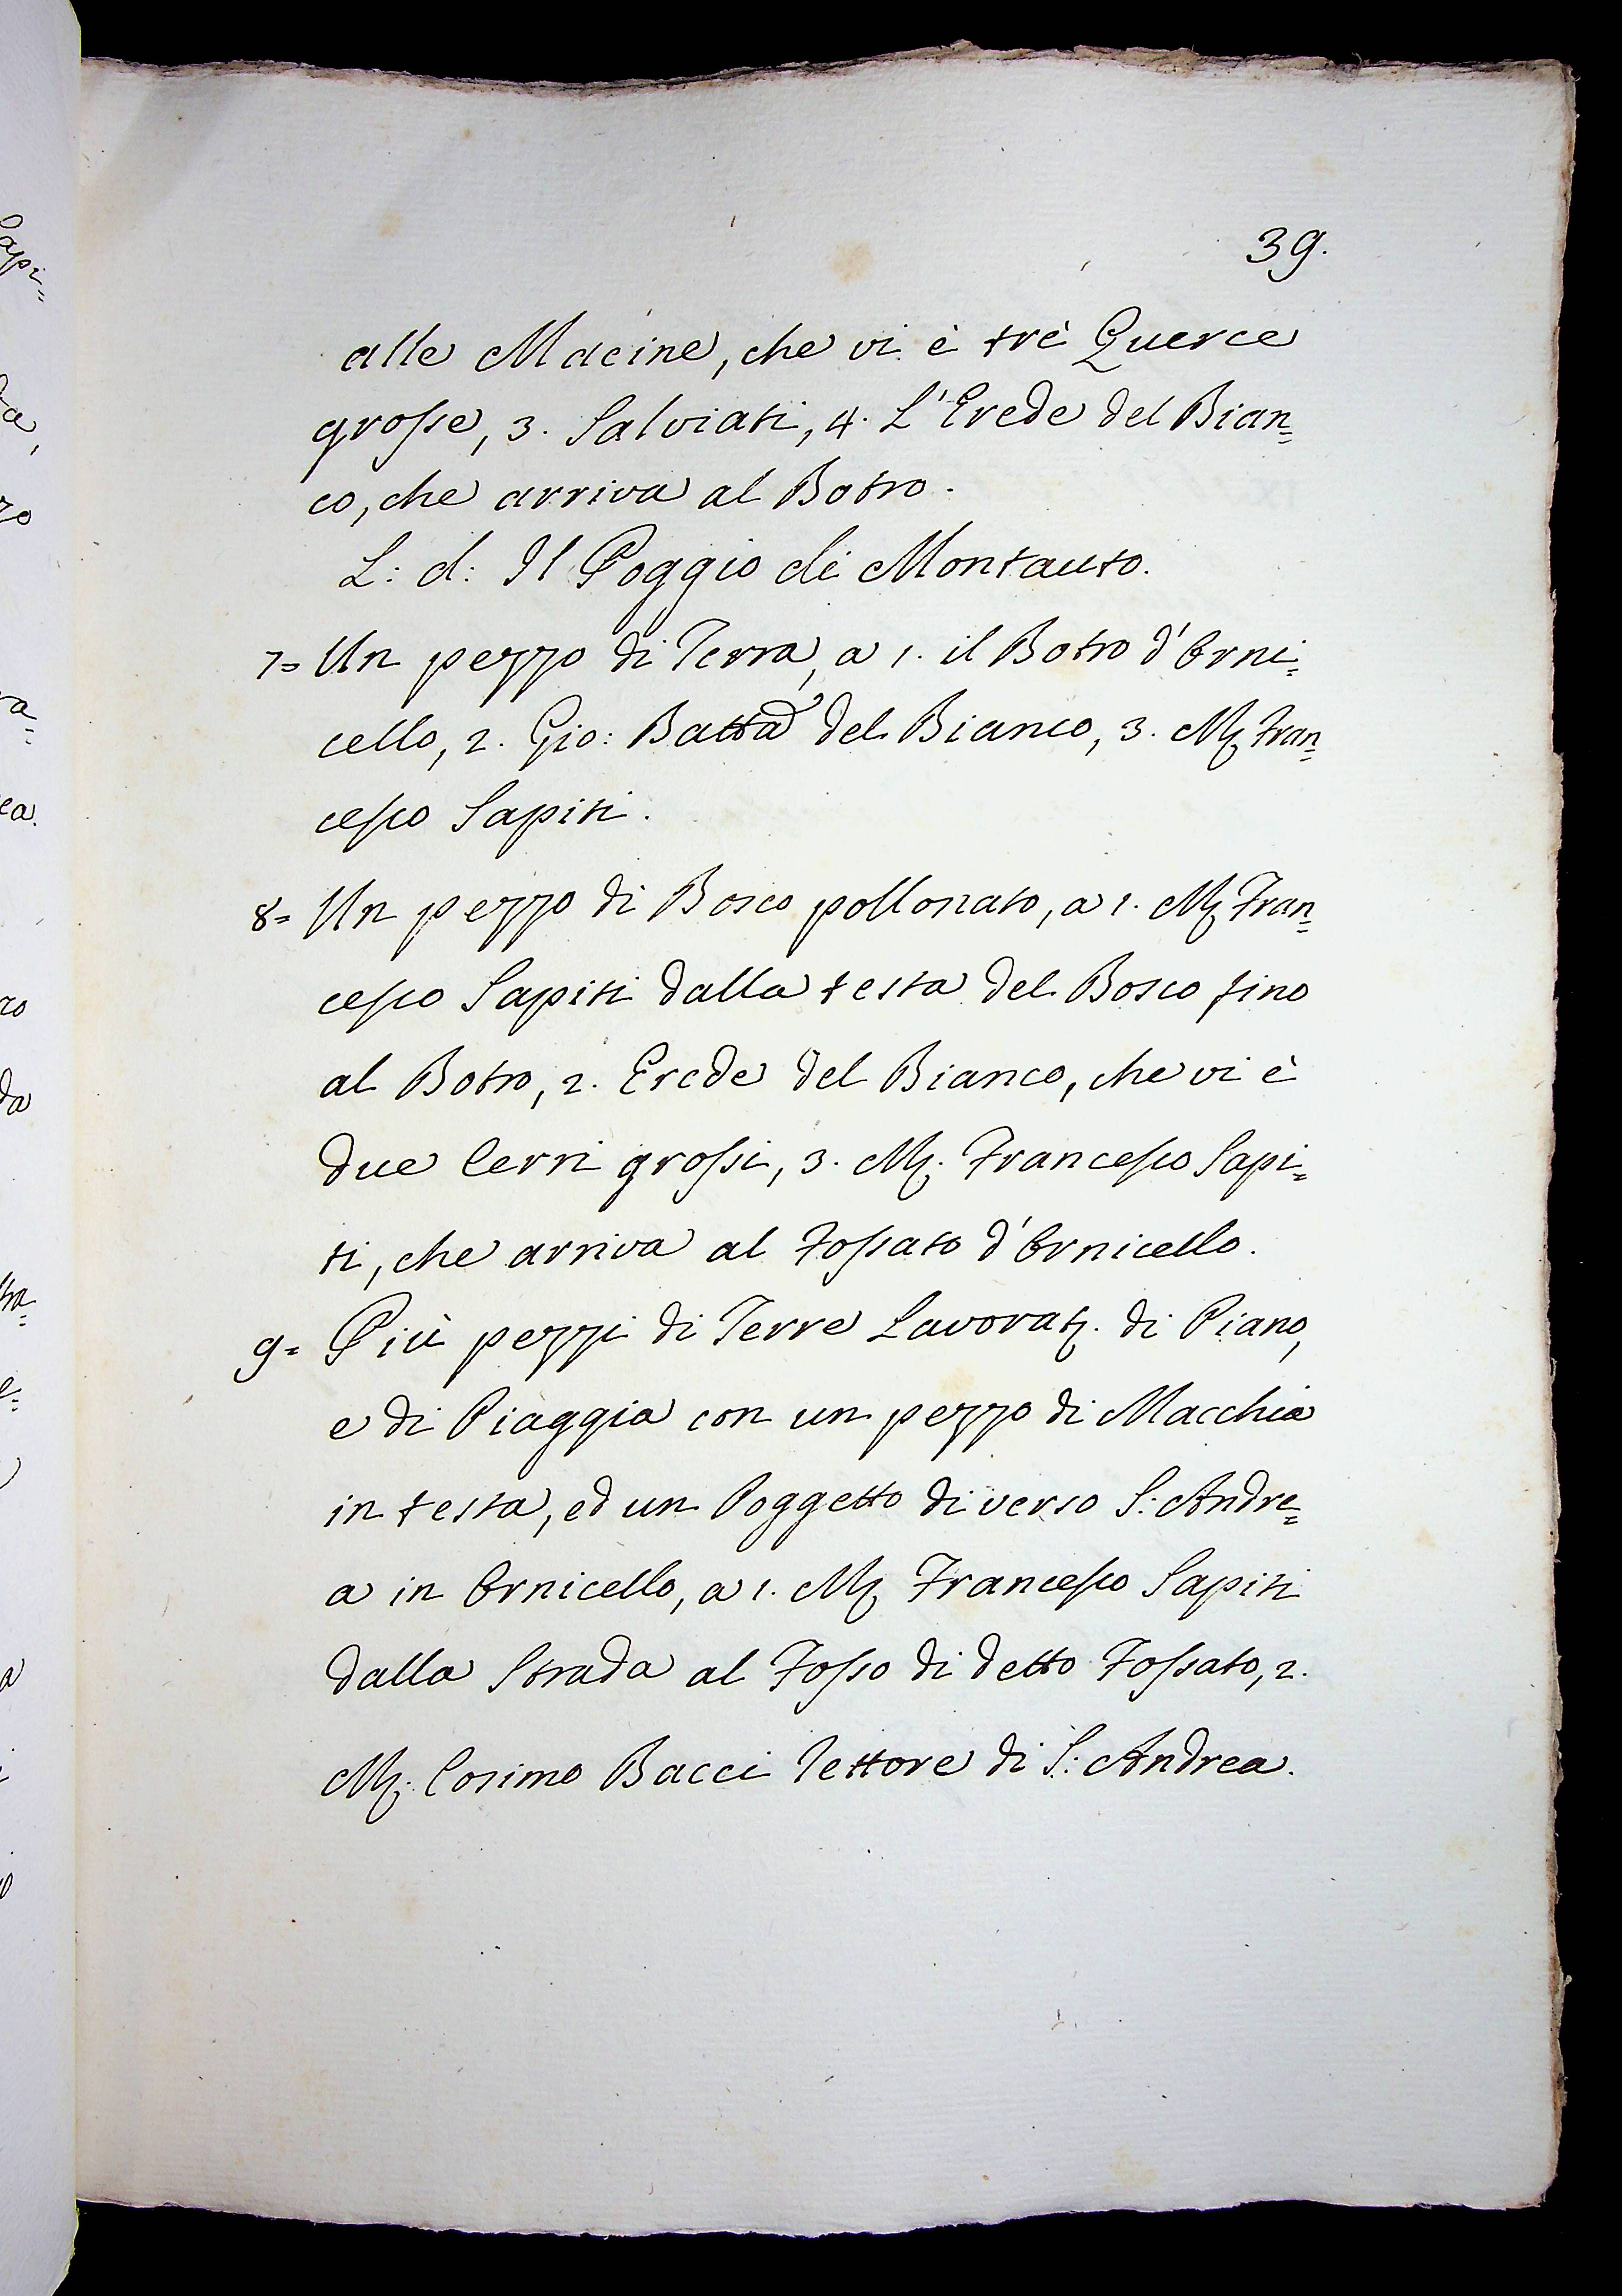 39.
alle Macine, che vi è trè Querce
grosse, 3. Salviati, 4. L'Erede del Bian=
co, che arriva al Botro.
L: d: Il Poggio di Montauto.
7= Un pezzo di Terra, a 1. il Botro d'Orni=
cello, 2. Gio: Batta del Bianco, 3. Mr Fran=
cesco Sapiti.
8= Un pezzo di Bosco pollonato, a 1. Mr Fran=
cesco Sapiti dalla testa del Bosco fino
al Botro, 2. Erede del Bianco, che vi è
due Cerri grossi, 3. Mr. Francesco Sapi=
ti, che arriva al Fossato d'Ornicello.
9= Più pezzi di Terre Lavorat. di Piano,
e di Piaggia con un pezzo di Macchia
in testa, ed un Poggetto di verso S: Andre=
a in Ornicello, a 1. Mr Francesco Sapiti
dalla Strada al Fosso di detto Fossato, 2.
Mr. Cosimo Bacci Rettore di S: Andrea.